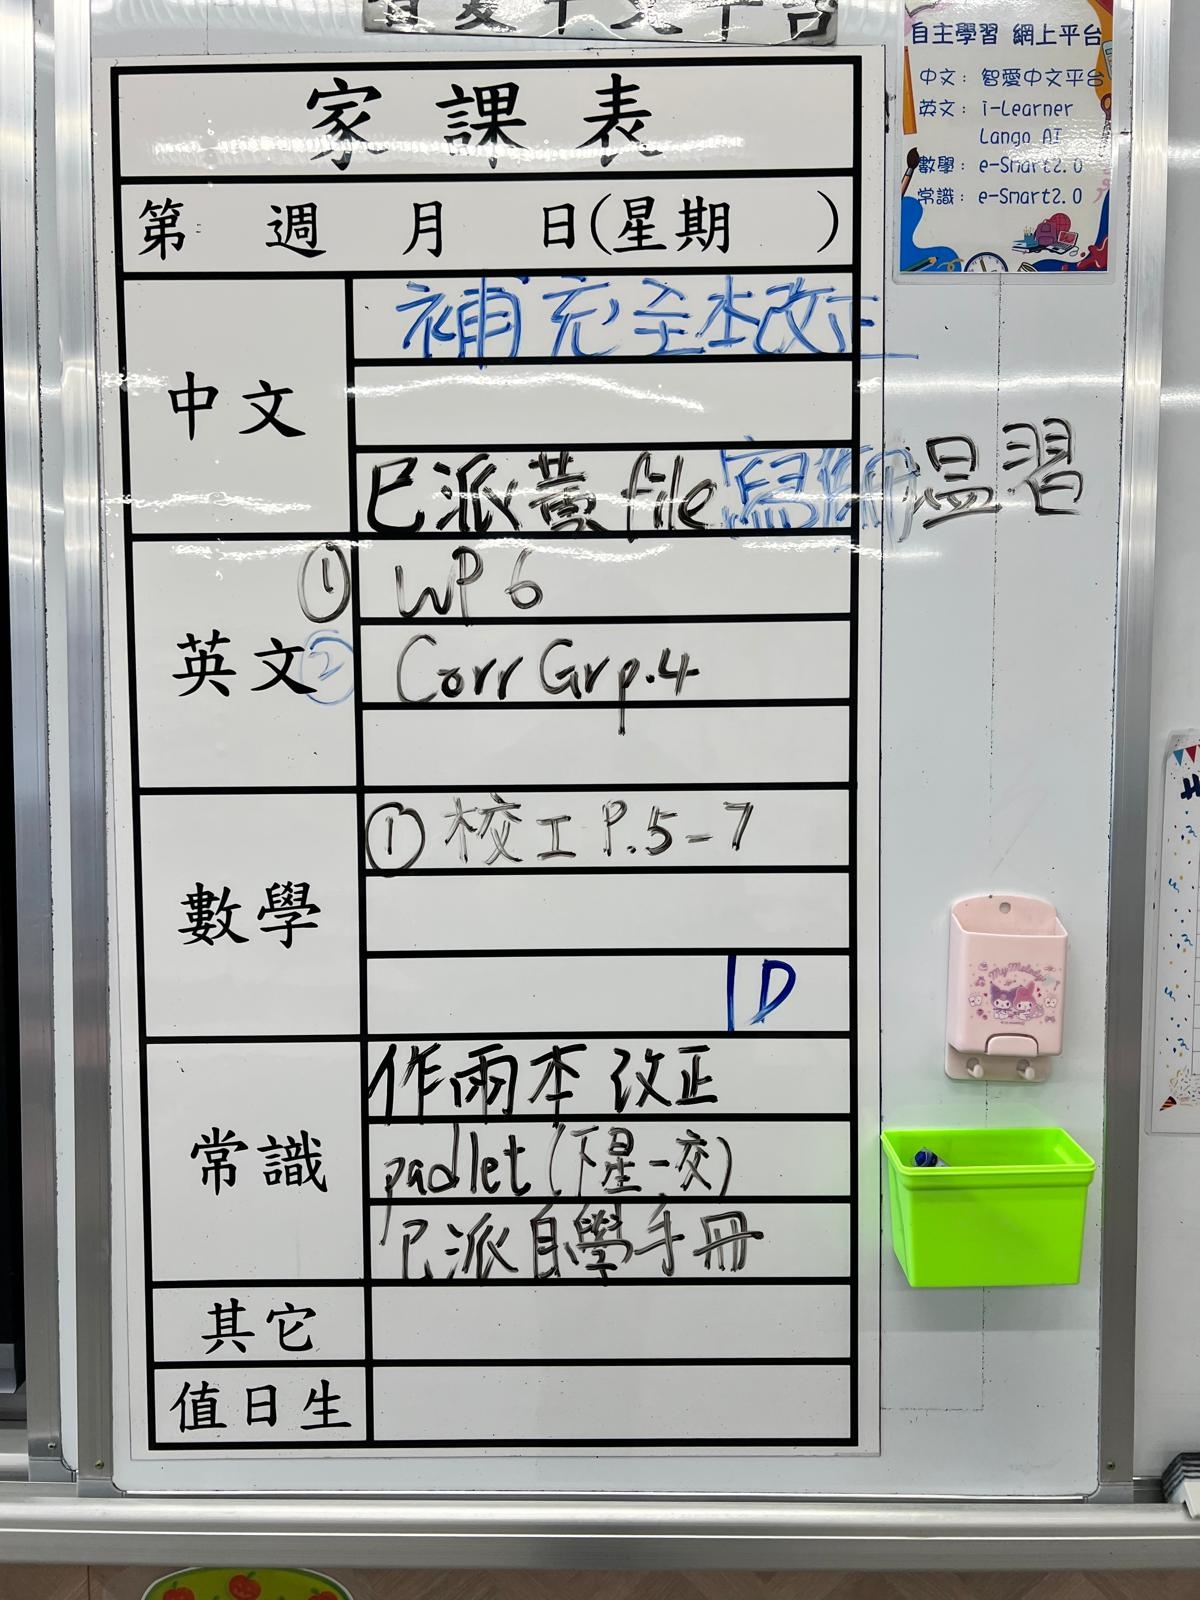 智愛中文平台
家課表
第 週 月 日(星期 )
中文
補充全本改正
已派黃file寫作冊温習
英文
① WP 6
② Corr Gr p.4
數學
① 校工 P.5-7
1D
常識
作兩本改正
padlet (下星一交)
已派自學手冊
其它
值日生
自主學習 網上平台
中文： 智愛中文平台
英文： i-Learner
Lango AI
數學： e-Smart2.0
常識： e-Smart2.0
My Melody